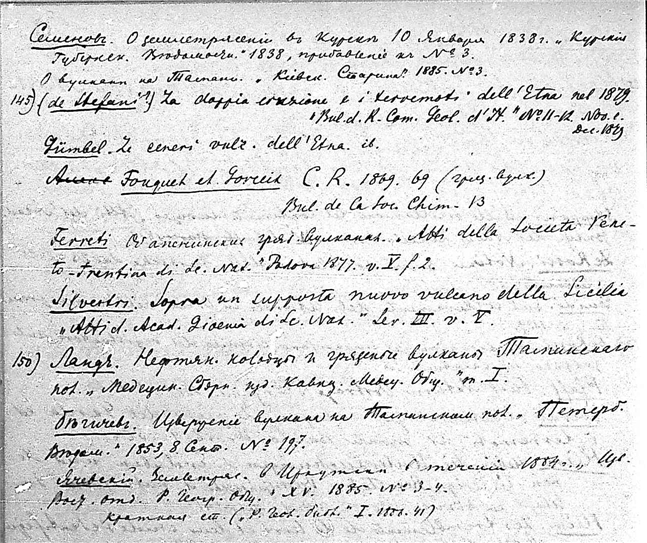 Семеновъ. О землетрясеніи въ Курскѣ 10 Января 1838 г. „Курскія
Губернск. Вѣдомости" 1838, прибавленіе къ № 3.
О вулканѣ на Тамани. „Кіевск. Старина" 1885. № 3.
145) (de Stefani?) La doppia eruzione e i terremoti dell'Etna nel 1879.
„Bul. d. R. Com. Geol. d'It." № 11-12. Nov. e.
Dec. 1879
Gümbel. Le ceneri vulc. dell'Etna. ib.
Fouquet et Gorceix C. R. 1869. 69 (гряз. вулк.)
Bul. de la Soc. Chim. 13
Ferreti Объ апенинских гряз. вулканах. „Atti della Societa Vene-
to-Trentina di Sc. Nat." Padova 1877. v. V. f. 2.
Silvestri. Sopra un supposto nuovo vulcano della Sicilia
„Atti d. Acad. Gioenia di Sc. Nat." Ser. III. v. V.
150) Ландъ. Нефтян. колодцы и грязевые вулканы Таманскаго
пол. „Медецин. Сборн. изд. Кавказ. Медец. Общ." т. I.
Бѣгичевъ. Изверженіе вулкана на Таманском пол. „Петерб.
Вѣдом." 1853, 8 Сент. № 197.
Ячевскій. Землетряс. в Иркутскѣ в теченіи 1884 г., „Изв.
Вост. отд. Р. Геогр. Общ." XV. 1885. № 3-4.
краткая ст. („Р. Геол. библ." I. 41)